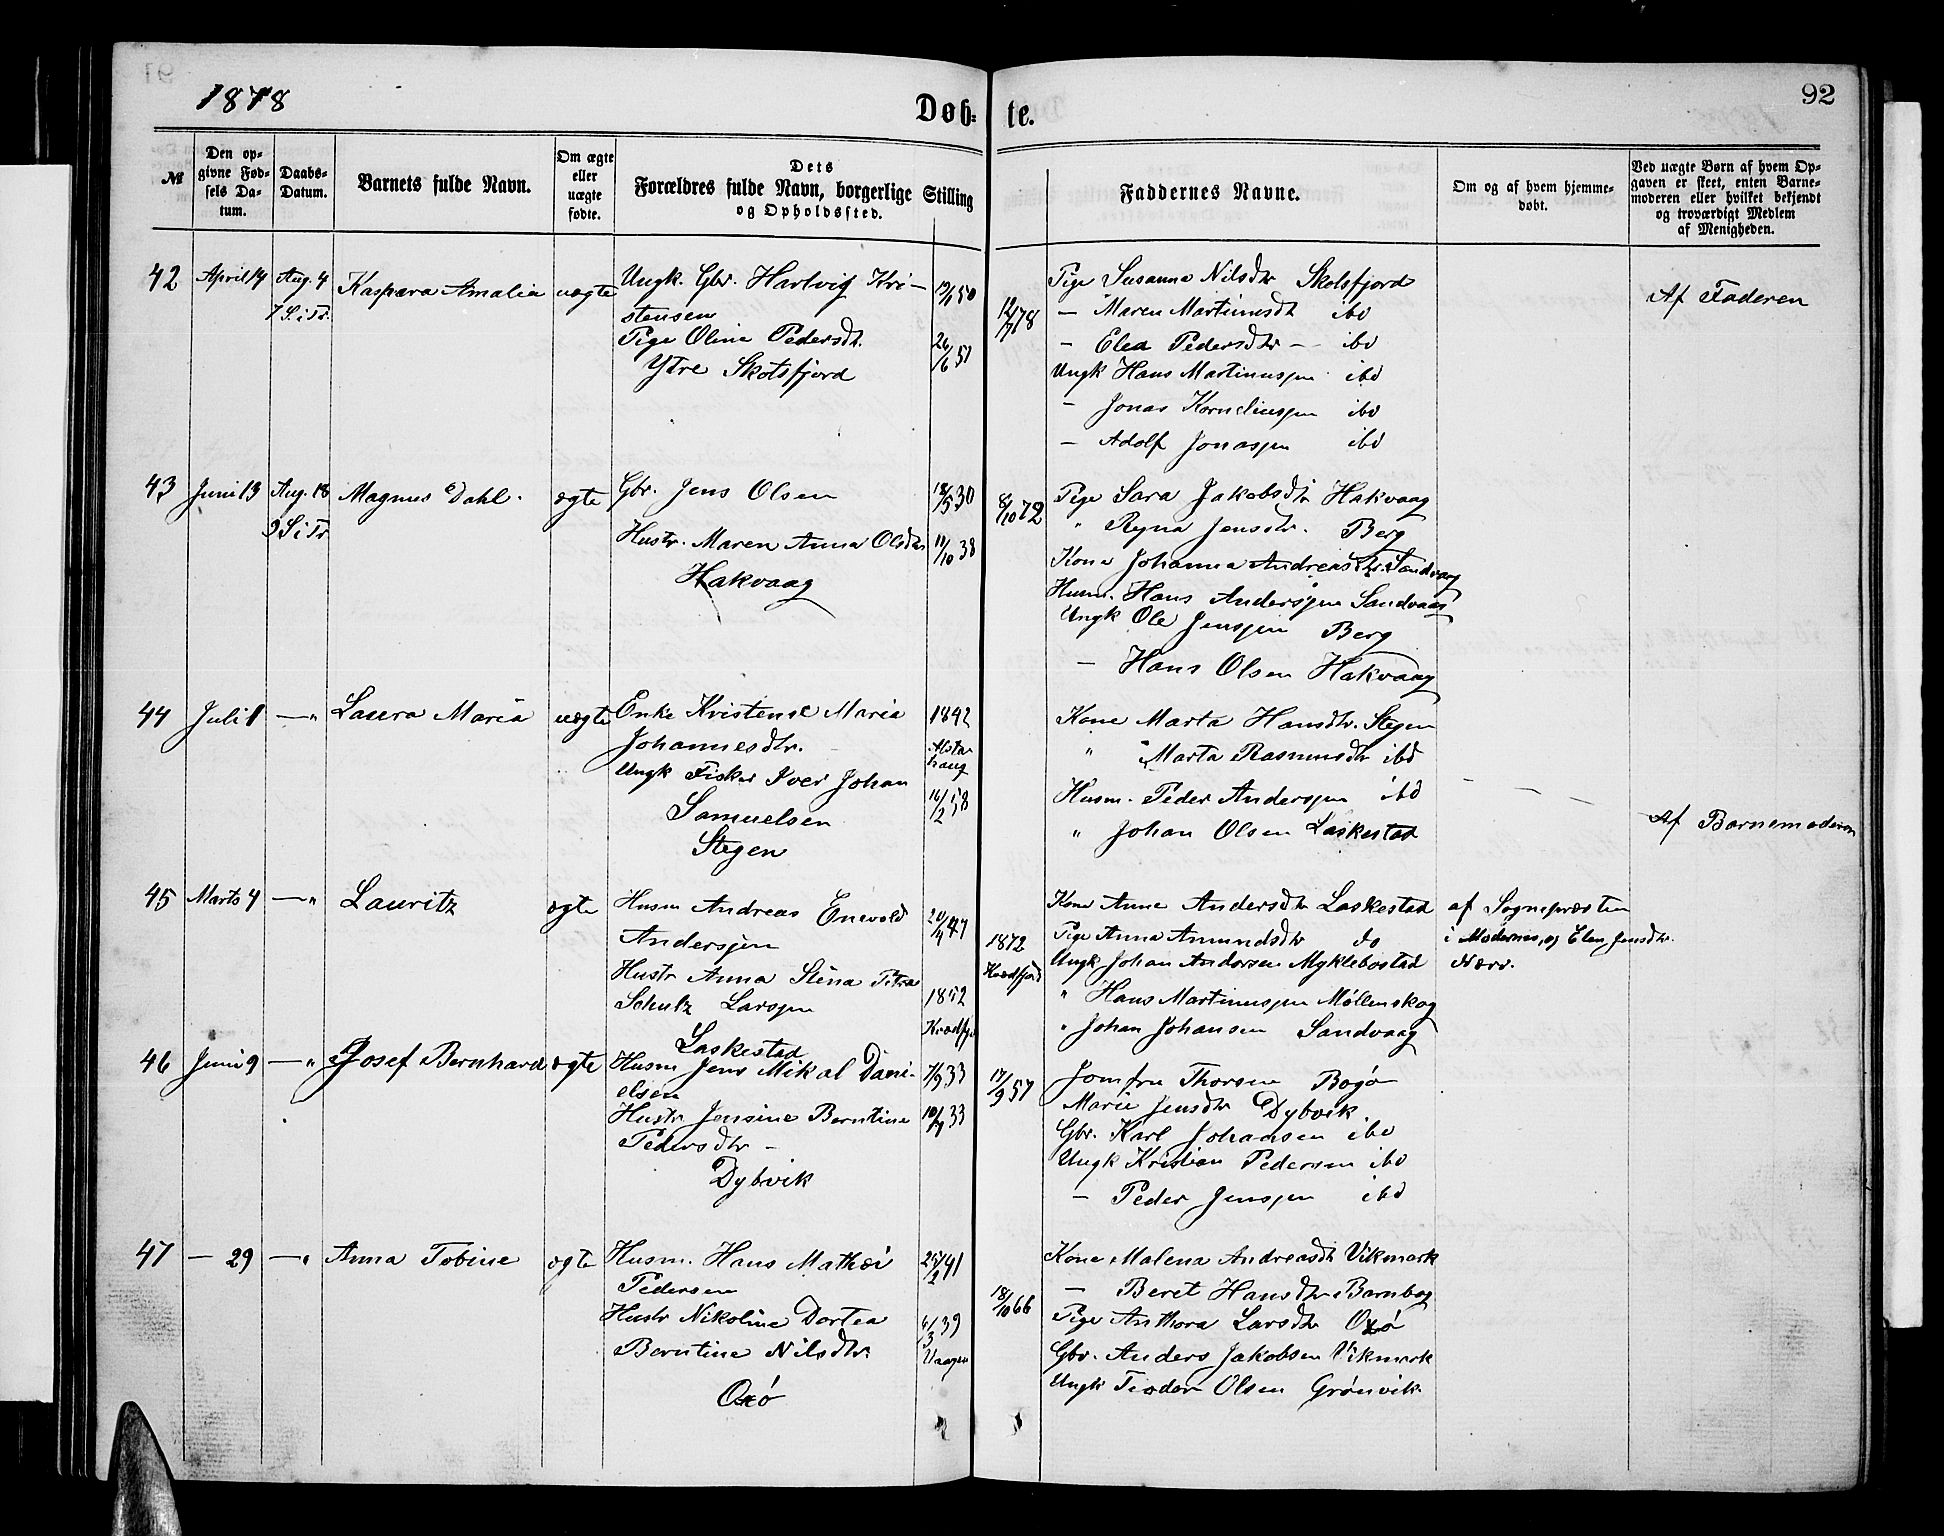 1878
Døb-te.
92
№
Den opgivne Fødsels Datum.
Daabs-Datum.
Barnets fulde Navn.
Om ægte eller uægte fødte.
Dets Forældres fulde Navn, borgerlige Stilling og Opholdssted.
Faddernes Navne.
Om og af hvem hjemmedøbt.
Ved uægte Børn af hvem Opgaven er skeet, enten Barnemoderen eller hvilket bekjendt og troværdigt Medlem af Menigheden.
42 April 14 Aug. 4 Kaspara Amalia uægte Ungk. Gbr. Hartvig Kri-
7 S. i Tr. stensen
Pige Oline Pedersdtr. 26/6 51
Ytre Skotsfjord
12/7 78
Pige Susanna Nilsdtr Skotsfjord
— Maren Martinusdt ibd
— Elea Pedersdtr — ibd
Ungk Hans Martinussen ibd
— Jonas Korneliussen ibd
— Adolf Jonassen ibd
Af Faderen
43 Juni 13 Aug. 18 Magnus Dahl. ægte Gbr. Jens Olsen 18/5 30
9 S i Tr Hustr. Maren Anna Olsdtr 11/10 38
Hakvaag
8/10 72
Pige Sara Jakobsdtr Hakvaag
" Regna Jensdtr. Berg
Kone Johanna Andreasdtr. Sandvaag
Husm. Hans Anderssen Sandvaag
Ungk Ole Jenssen Berg
— Hans Olsen Hakvaag
44 Juli 1 —" Laura Maria uægte Enke Kristense Maria 1842
Johannesdtr. Alstahaug
Ungk Fisker Iver Johan 16/2 58
Samuelsen
Stegen
Kone Marta Hansdtr. Stegen
" Marta Rasmusdtr ibd
Husm. Peder Anderssen ibd
" Johan Olsen Laskestad
Af Barnemoderen
45 Marts 4 —" Lauritz ægte Husm Andreas Enevold 20/4 47
Anderssen
Hustr Anna Stina Petra 1852
Schutz Larssen
Laskestad
1872
Kone Anne Andersdtr Laskestad
Pige Anna Amundsdtr do
Ungk Johan Andersen Myklebostad
" Hans Martinussen Møllenskog
" Johan Johansen Sandvaag
af Sognepræsten
i Moderens, og Elen Jensdtr.
Nærv.
46 Juni 9 —" Josef Bernhard ægte Husm Jens Mikal Dani- 7/9 33
elsen
Hustr Jensine Berntine 10/7 33
Pedersdtr —
Dybvik
17/9 57
Jomfru Thorsen Bogø
Marie Jensdtr Dybvik.
Gbr. Karl Johansen ibd
Ungk Kristian Pedersen ibd
— Peder Jenssen ibd
47 — 29 —" Anna Tobine ægte Husm. Hans Mathæi 25/2 41
Pedersen
Hustr Nikoline Dortea 6/3 39
Berntine Nilsdtr. Vaagen
Oxø
18/10 66
Kone Malena Andreasdt Vikmark
— Beret Hansdtr Barnbog
Pige Anthora Larsdtr Oxø
Gbr. Anders Jakobsen Vikmark
Ungk Teoder Olsen Grønvik